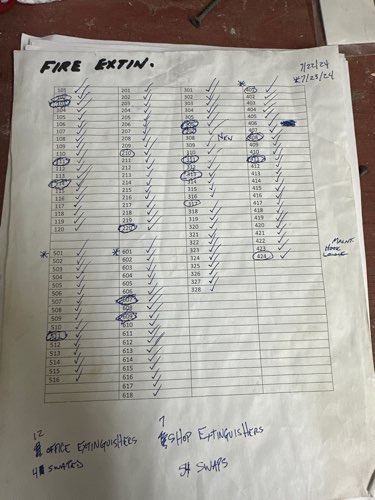 FIRE EXTIN.
7/22/24
*7/23/24
101 ✓
104 ✓
105 ✓
106 ✓
107 ✓
108 ✓
109 ✓
110 ✓
111 ✓
112 ✓
113 ✓
114 ✓
115 ✓
116 ✓
117 ✓
118 ✓
119 ✓
120 ✓
201 ✓
202 ✓
203 ✓
204 ✓
205 ✓
206 ✓
207 ✓
208 ✓
209 ✓
210 ✓
211 ✓
212 ✓
213 ✓
214 ✓
215 ✓
216 ✓
217 ✓
218 ✓
219 ✓
220 ✓
301 ✓
302 ✓
303 ✓
304 ✓
305 ✓
306 ✓
307 ✓
308 ✓ NEW
309 ✓
310 ✓
311 ✓
312 ✓
313 ✓
314 ✓
315 ✓
316 ✓
317 ✓
318 ✓
319 ✓
320 ✓
321 ✓
322 ✓
323 ✓
324 ✓
325 ✓
326 ✓
327 ✓
328 ✓
* 401 ✓
402 ✓
403 ✓
404 ✓
405 ✓
406
407 ✓
408 ✓
409 ✓
410 ✓
411 ✓
412 ✓
413 ✓
414 ✓
415 ✓
416 ✓
417 ✓
418 ✓
419 ✓
420 ✓
421 ✓
422 ✓
423 ✓
424 ✓
MAINT.
* 501 ✓
502 ✓
503 ✓
504 ✓
505 ✓
506 ✓
507 ✓
508 ✓
509 ✓
510 ✓
511 ✓
512 ✓
513 ✓
514 ✓
515 ✓
516 ✓
* 601 ✓
602 ✓
603 ✓
604 ✓
605 ✓
606 ✓
607 ✓
608 ✓
609 ✓
610 ✓
611 ✓
612 ✓
613 ✓
614 ✓
615 ✓
616 ✓
617 ✓
618 ✓
12
OFFICE EXTINGUISHERS
4 SWAPED
7
SHOP EXTINGUISHERS
SWAPS